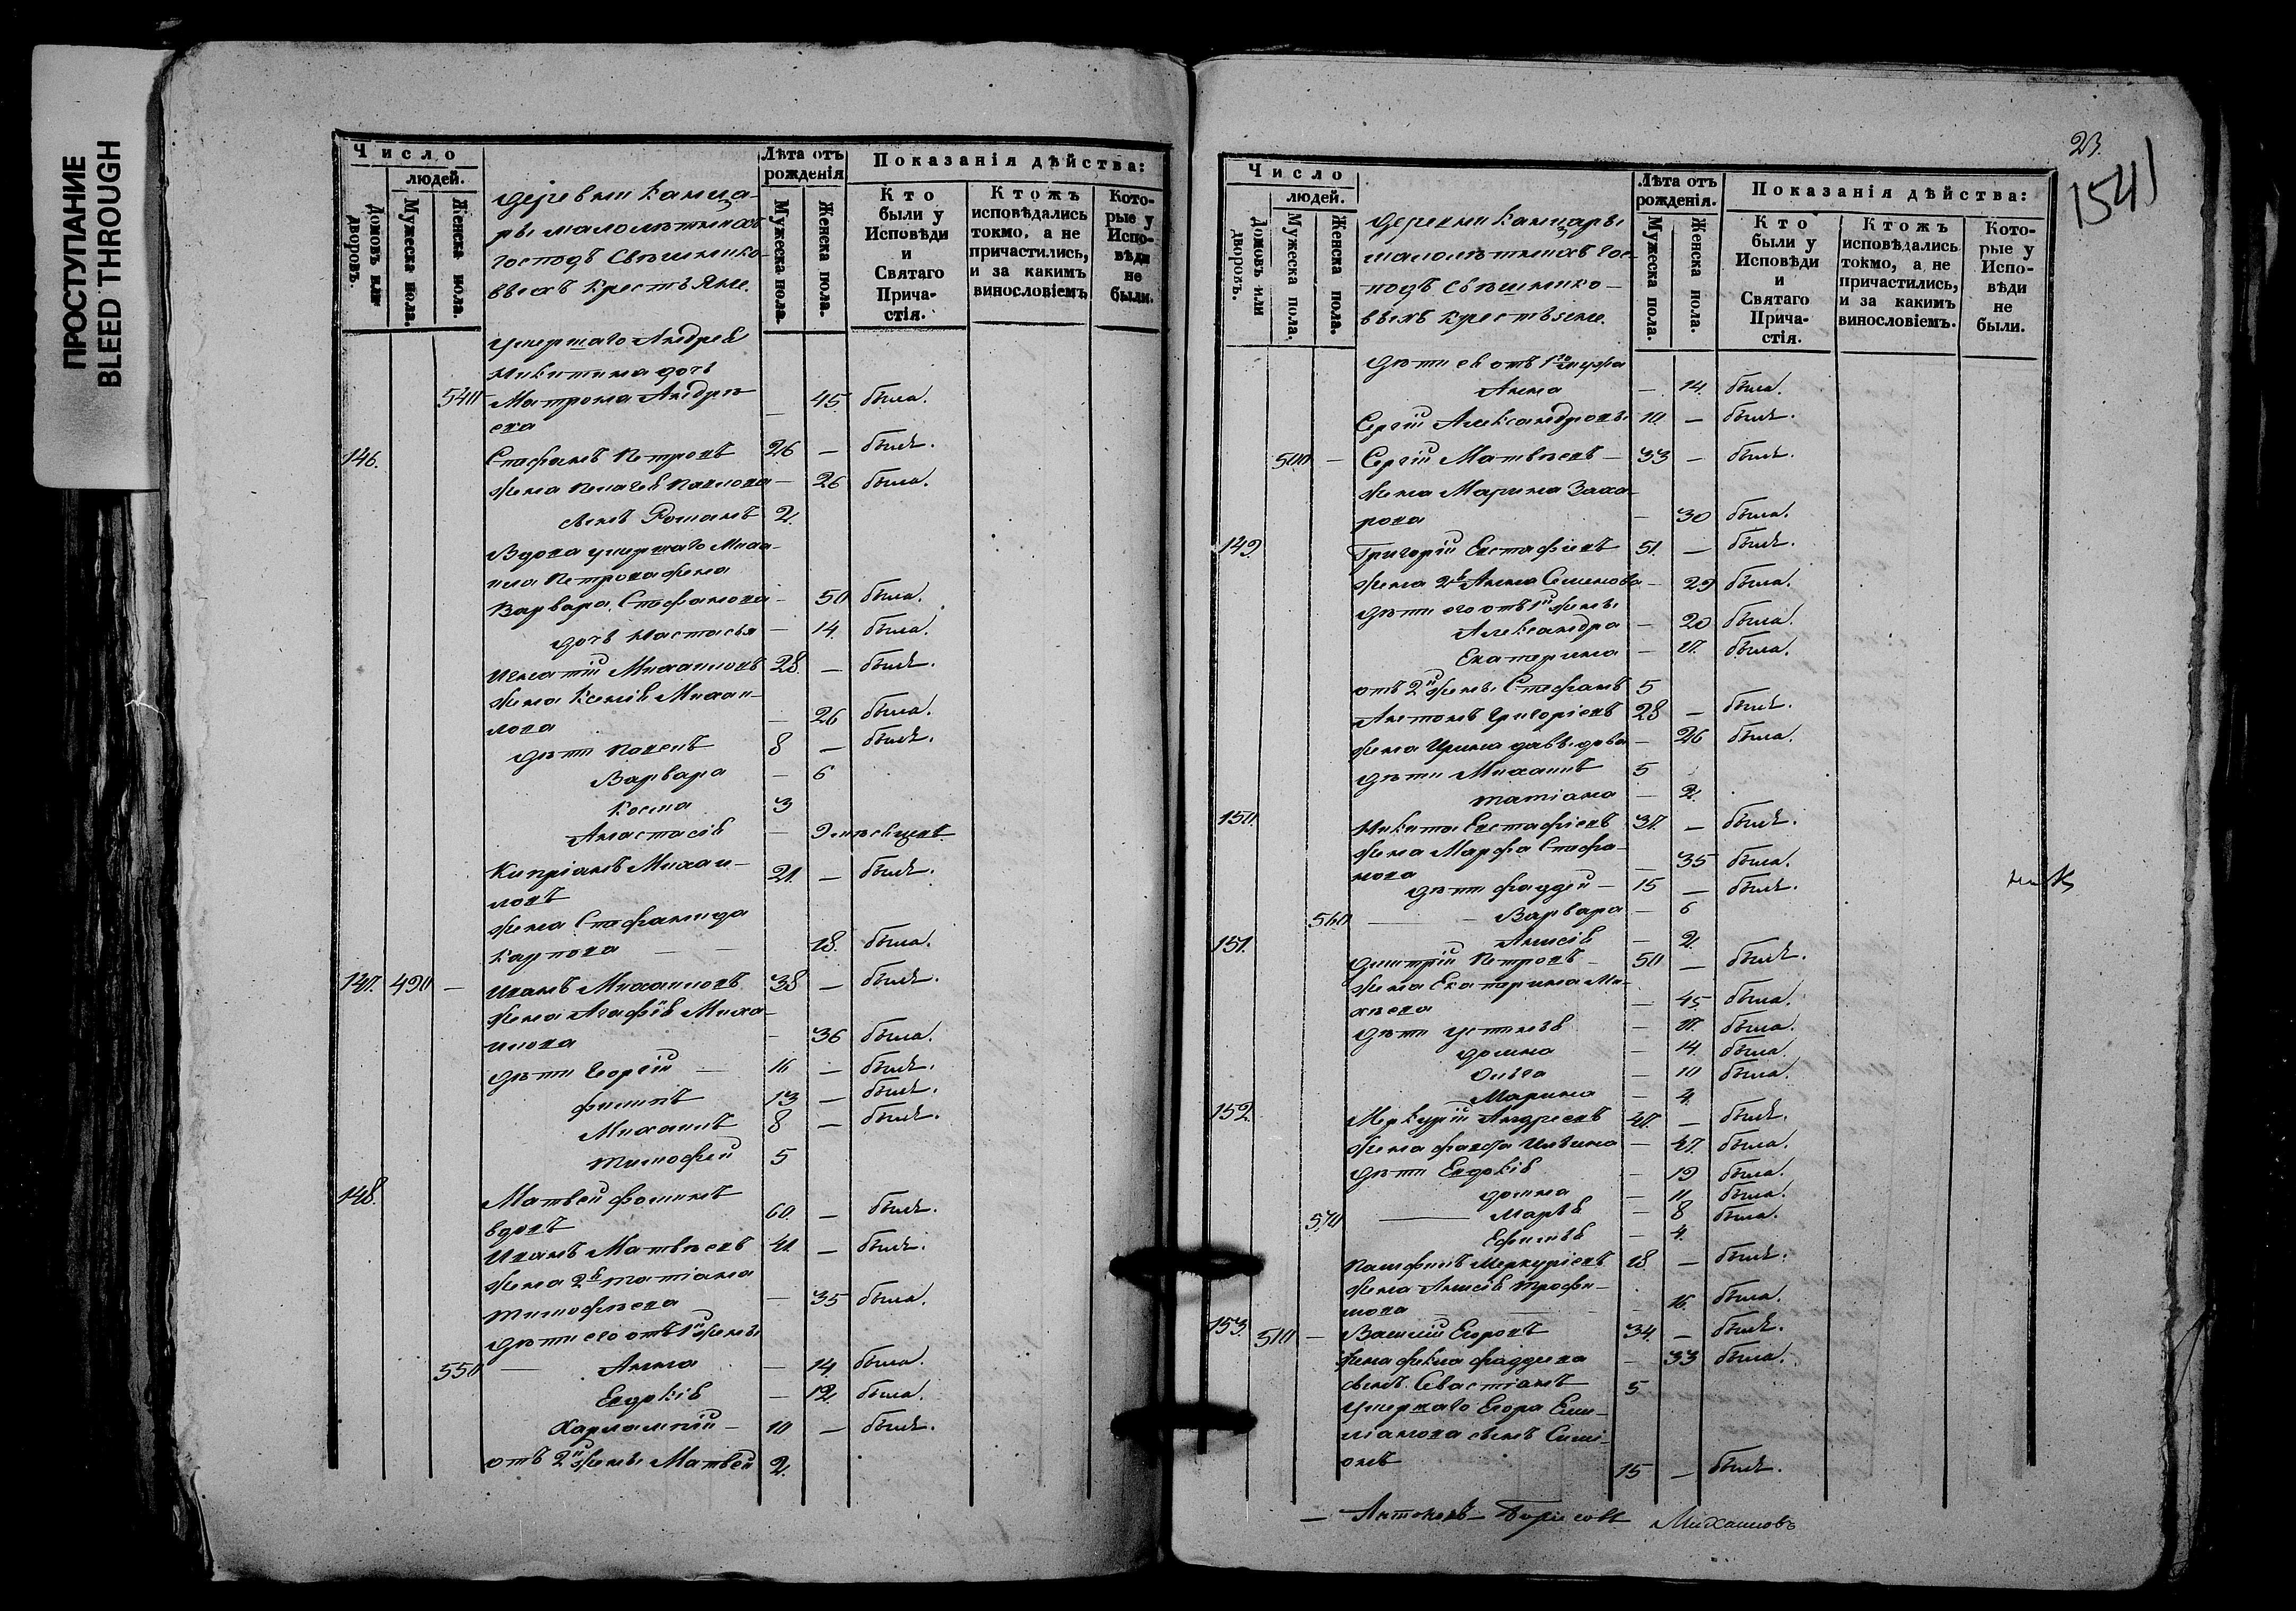 ПРОСТУПАНИЕ
BLEED THROUGH
Число
людей.
Домовъ или дворовъ.
Мужеска пола.
Женска пола.
деревни Канца-
ры малолѣтныхъ
господъ Свѣшнико-
выхъ крестьяне.
Лѣта отъ рожденія
Мужеска пола.
Женска пола.
Показанія дѣйства:
Кто были у Исповѣди и Святаго Прича-стія.
Ктожъ исповѣдались токмо, а не причастились, и за какимъ винословіемъ
Кото-рые у Испо-вѣди не были.
умершаго Андрея
Никитина дочь
540 Матрона Андрѣ- — 45 была.
ева
146. Стефанъ Петровъ 26 — былъ.
жена Пелагея Павлова — 26 была.
сынъ Романъ 2.
Вдова умершаго Миха-
ила Петрова жена
Варвара Стефанова — 50 была.
дочь Настасья — 14. была.
Игнатій Михаиловъ 28. — былъ.
жена Ксенія Михаи-
лова — 26 была.
дѣти Павелъ 8 — былъ.
Варвара — 6
Косма 3
Анастасія —
Кипріанъ Михаи- 21. — былъ.
ловъ
жена Стефанида
Карпова — 18. была.
147. 490 — Иванъ Михаиловъ 38 — былъ.
жена Агафія Миха-
илова — 36 была.
дѣти Георгій — 16 — былъ.
Филипъ 13 — былъ.
Михаилъ 8 — былъ.
Тимофей 5
148. Матвей Фоминъ
вдовъ 60. — былъ.
Иванъ Матвѣевъ 41. — былъ.
жена 2я Татіана
Тимофѣева — 35 была.
дѣти его отъ 1й жены
550 — Анна — 14. была.
Евдокія — 12. была.
Харлампій — 10 — былъ.
отъ 2й жены Матвей 2.
23.
1541
Число
людей.
Домовъ или дворовъ.
Мужеска пола.
Женска пола.
деревни Канцары
малолѣтныхъ гос-
подъ Свѣшнико-
выхъ крестьяне.
Лѣта отъ рожденія.
Мужеска пола.
Женска пола.
Показанія дѣйства:
Кто были у Исповѣди и Святаго Прича-стія.
Ктожъ исповѣдались токмо, а не причастились, и за какимъ винословіемъ.
Кото-рые у Испо-вѣди не были.
дѣти ея отъ 1го мужа
Анна — 14. была.
Сергій Александровъ 10. — былъ.
500 — Сергій Матвѣевъ — 33 — былъ.
жена Марина Заха-
рова — 30 была.
149 Григорій Евстафіевъ 51. — былъ.
жена 2я Анна Семенова — 29 была.
дѣти его отъ 1й жены
Александра — 20 была.
Екатерина — 17. была.
отъ 2й жены Стефанъ 5
Антонъ Григоріевъ 28 — былъ.
жена Ирина Давыдова — 26 была.
дѣти Михаилъ 5
Татіана — 2.
150. Никита Евстафіевъ 37. — былъ.
жена Марфа Стефа- — 35 была.
нова
дѣти Фаддей — 15 — былъ.
560 — Варвара — 6
Анисія — 2.
151. Димитрій Петровъ — 50 — былъ.
жена Екатерина Ми-
хѣева — 45 была.
дѣти Устинья — 17. была.
Домна — 14. была.
Ольга — 10 была.
Марина — 4.
152. Меркурій Андреевъ 47. — былъ.
жена — 47. была.
дѣти Евдокія — 19 была.
Домна — 11 была.
570 — Марья — 8 была.
— 4.
Памфилъ Меркуріевъ 18. — былъ.
жена Анисія Трофи-
мова — 16. была.
153. 510 — Василій Егоровъ 34. — былъ.
жена Фекла Фаддеева — 33 была.
сынъ Севастіанъ 5
умершаго Егора Еми-
ліанова сынъ Симе-
онъ 15 — былъ.
— Антоновъ Борисовъ Михаиловъ